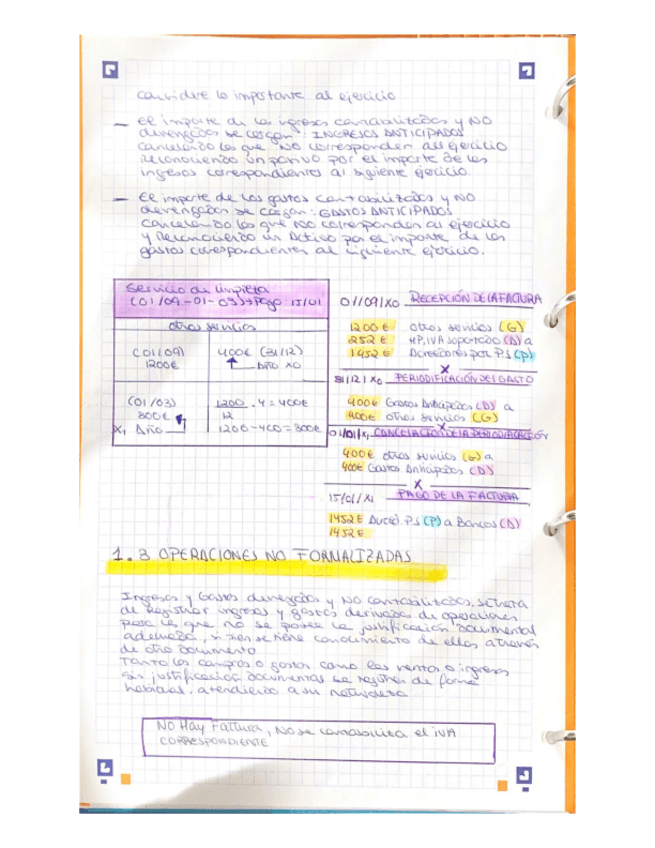 considere lo importante al ejercicio
— El importe de los ingresos contabilizados y NO
devengados se cargan: INGRESOS ANTICIPADOS
cancelando los que NO corresponden al ejercicio
reconociendo un pasivo por el importe de los
ingresos correspondientes al siguiente ejercicio.
— El importe de los gastos contabilizados y NO
devengados se cargan: GASTOS ANTICIPADOS
cancelando los que NO corresponden al ejercicio
y reconociendo un Activo por el importe de los
gastos correspondientes al siguiente ejercicio.
Servicio de limpieza
(01/09-01-03)→Pago: 15/01
otros servicios
(01/09)
1200€
400€ (31/12)
Año X0
(01/03)
800€
X1 Año
1200 . 4 = 400€
12
1200-400=800€
01/09/X0 RECEPCIÓN DE LA FACTURA
1200€ otros servicios (G)
252€ HP, IVA soportado (A) a
1452€ Acreedores por P.S (P)
X
31/12/X0 PERIODIFICACIÓN DEL GASTO
400€ Gastos Anticipados (A) a
400€ otros servicios (G)
X
01/01/X1 CANCELACIÓN DE LA PERIODIFICACIÓN
400€ otros servicios (G) a
400€ Gastos Anticipados (A)
X
15/01/X1 PAGO DE LA FACTURA
1452€ Acreed. P.S (P) a Bancos (A)
1452€
1.3 OPERACIONES NO FORMALIZADAS
Ingresos y Gastos devengados y NO contabilizados, se trata
de registrar ingresos y gastos derivados de operaciones
para las que no se posee la justificación documental
adecuada, si bien se tiene conocimiento de ellas a través
de otro documento
Tanto las compras o gastos como las ventas o ingresos
sin justificación documental se registran de forma
habitual, atendiendo a su naturaleza
NO Hay Factura, NO se contabiliza el IVA
CORRESPONDIENTE